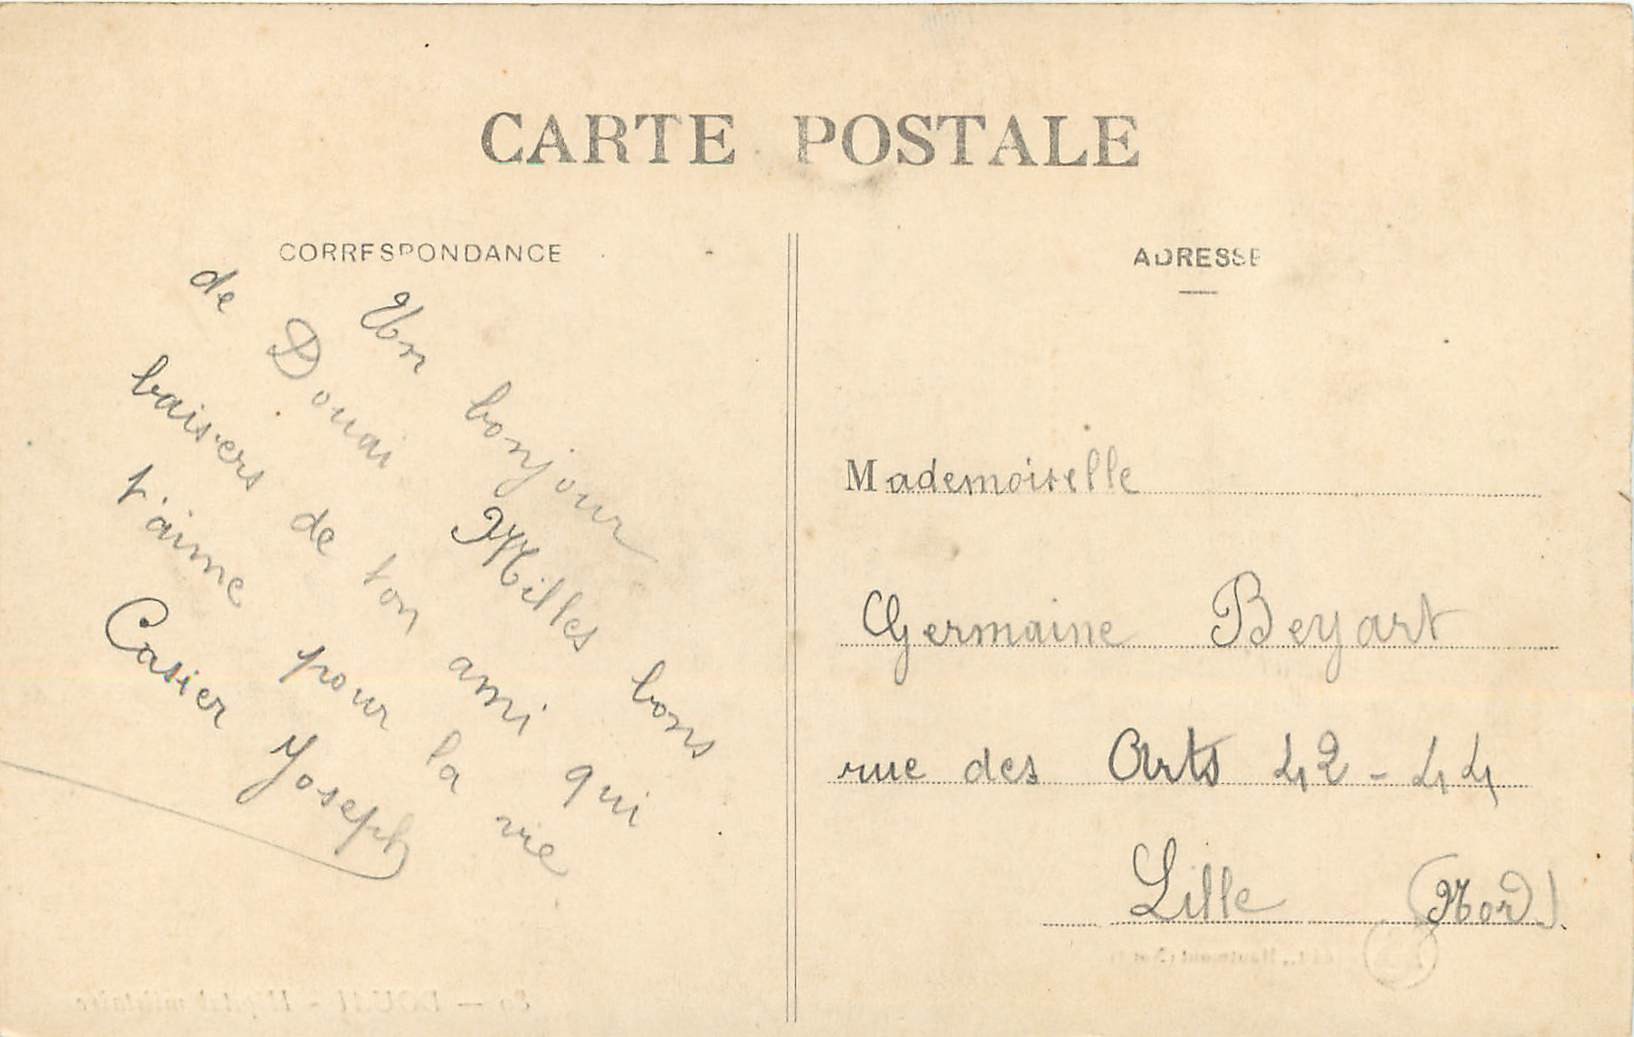 CARTE POSTALE
CORRESPONDANCE
Un bonjour
de Douai Milles bons
baisers de ton ami qui
t'aime pour la vie
Casier Joseph
ADRESSE
Mademoiselle
Germaine Beyart
rue des Arts 42-44
Lille (Nord)